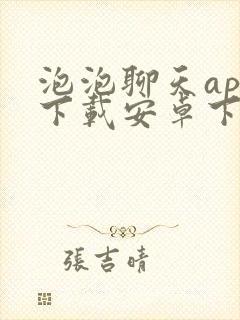 泡泡聊天ap
下載安卓下
張吉晴